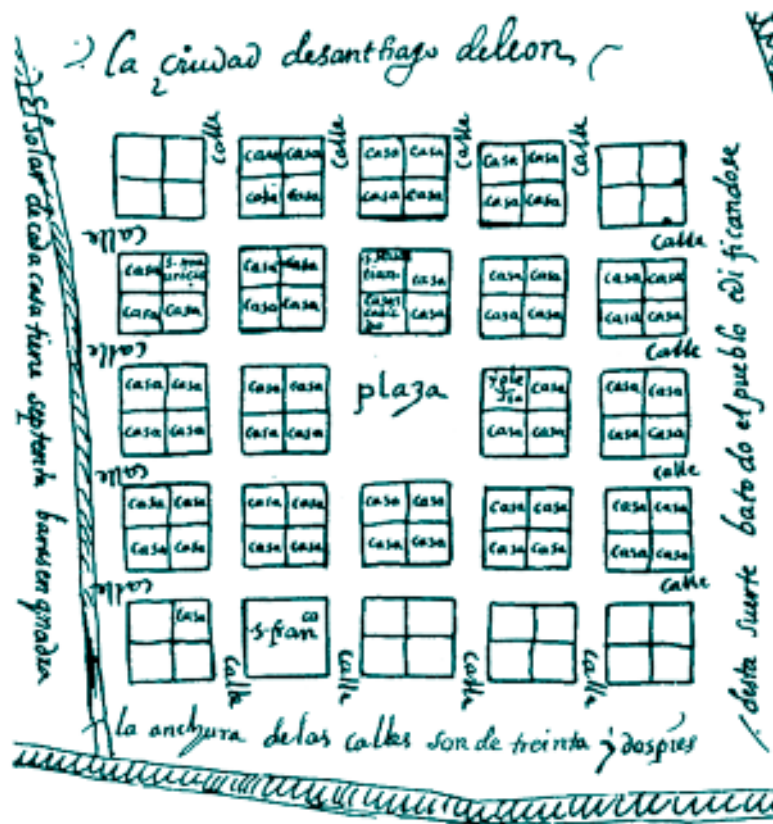 La ciudad desanthiago deleon
El solar de cada casa tiene septenta baras en quadra
desta suerte bato do el pueblo edi ficandose
calle calle calle calle
casa casa casa casa casa casa
casa casa casa casa casa casa
calle calle
casa casa casa casa casa casa casa casa
casa casa casa casa casa casa casa casa casa
calle calle
casa casa casa casa plaza casa casa casa
casa casa casa casa casa casa casa casa
calle calle
casa casa casa casa casa casa casa casa casa casa
casa casa casa casa casa casa casa casa casa casa
calle calle
casa s. fran co
calle calle calle calle
la anchura de las calles son de treinta y dos pies